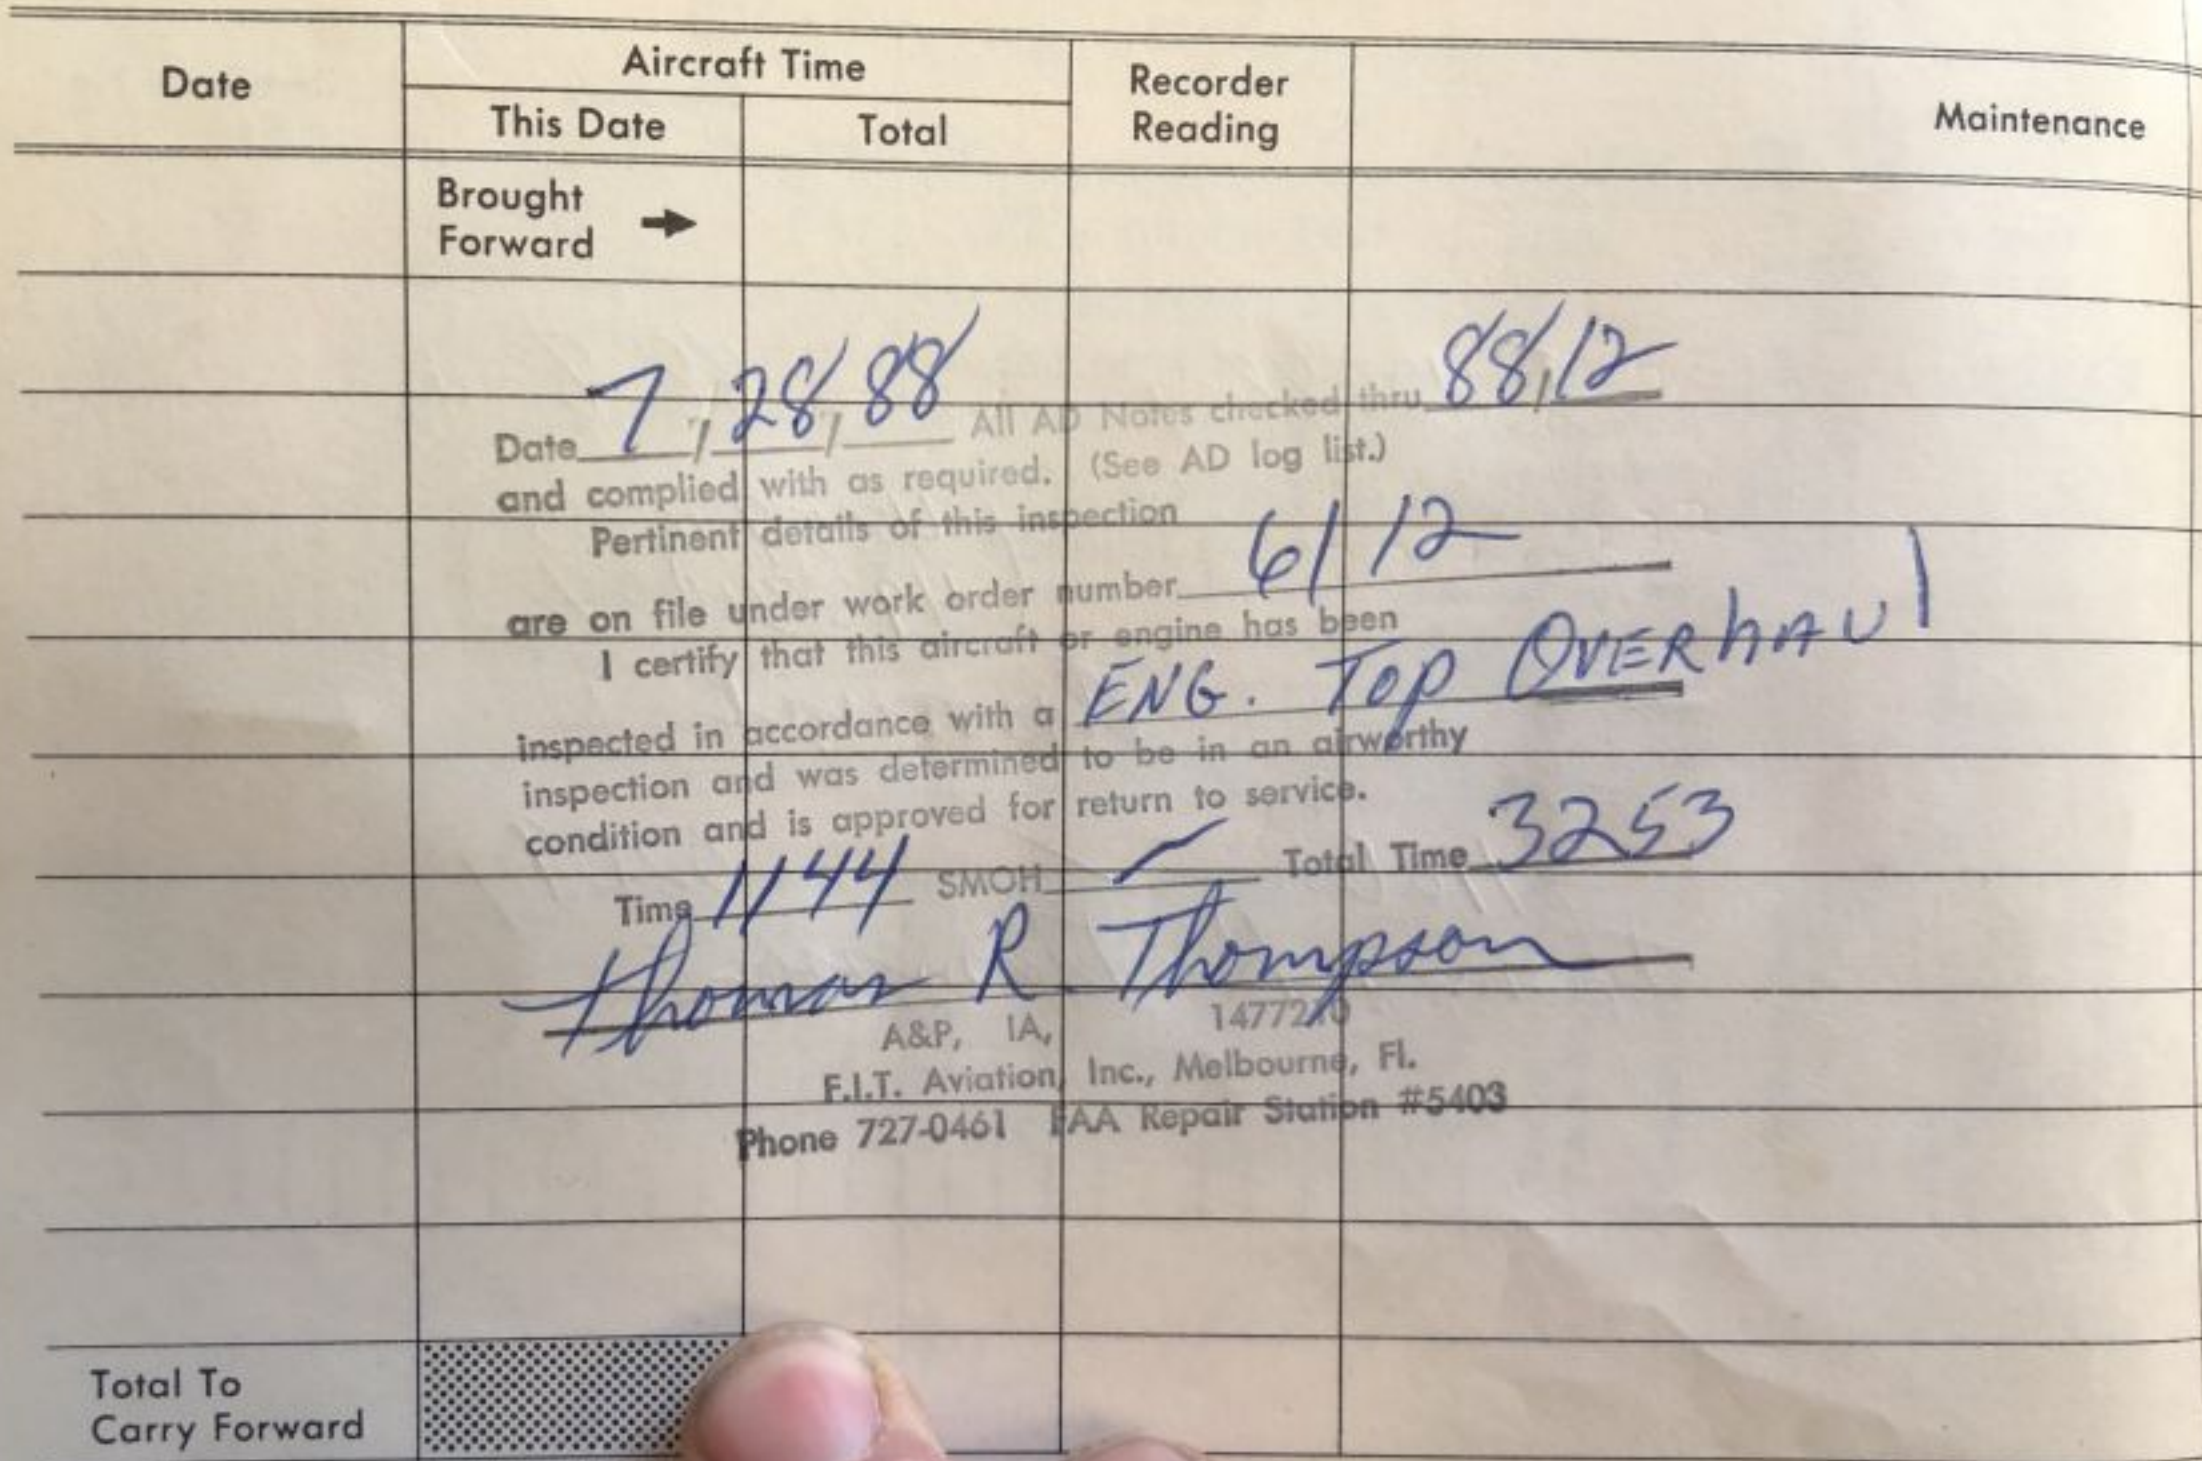 Date Aircraft Time Recorder Reading Maintenance
This Date Total
Brought Forward
Date 7/28/88 All AD Notes checked thru 88,12
and complied with as required. (See AD log list.)
Pertinent details of this inspection
are on file under work order number 6112
I certify that this aircraft or engine has been
inspected in accordance with a ENG. TOP OVERHAUl
inspection and was determined to be in an airworthy
condition and is approved for return to service.
Time 1144 SMOH — Total Time 3253
Thomas R. Thompson
A&P, IA,
F.I.T. Aviation, Inc., Melbourne, Fl.
Phone 727-0461 FAA Repair Station #5403
Total To
Carry Forward